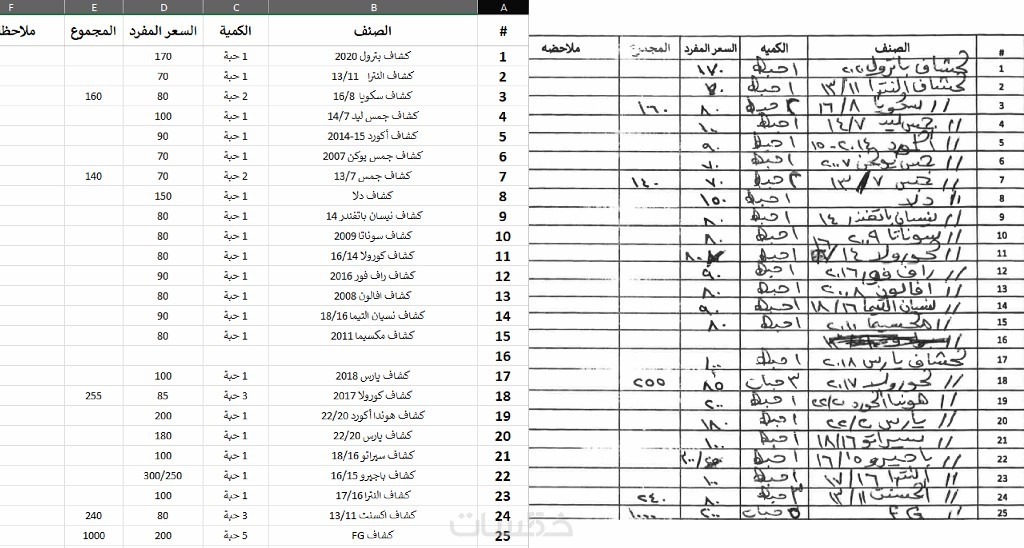 # الصنف الكميه السعر المفرد المجموع ملاحضه
1 كشاف باترول ٢٠٢٠ ١ حبه ١٧٠
2 كشاف النترا ١٣/١١ ١ حبه ٧٠
3 // سكويا ١٦/٨ ٢ حبه ٨٠ ١٦٠
4 // جمس ليد ١٤/٧ ١ حبه ١٠٠
5 // اكورد ٢٠١٤-١٥ ١ حبه ٩٠
6 // جمس يوكن ٢٠٠٧ ١ حبه ٧٠
7 // جمس ١٣/٧ ٢ حبه ٧٠ ١٤٠
8 // دلا ١ حبه ١٥٠
9 // نيسان باتفندر ١٤ ١ حبه ٨٠
10 // سوناتا ٢٠٠٩ ١ حبه ٨٠
11 // كورولا ١٤/١٦ ١ حبه ٨٠
12 // راف فور ٢٠١٦ ١ حبه ٩٠
13 // افالون ٢٠٠٨ ١ حبه ٨٠
14 // نسيان التيما ١٨/١٦ ١ حبه ٩٠
15 // مكسيما ٢٠١١ ١ حبه ٨٠
16
17 كشاف يارس ٢٠١٨ ١ حبه ١٠٠
18 // كورولا ٢٠١٧ ٣ حبات ٨٥ ٢٥٥
19 // هوندا اكورد ٢٢/٢٠ ١ حبه ٢٠٠
20 // يارس ٢٢/٢٠ ١ حبه ١٨٠
21 // سيراتو ١٨/١٦ ١ حبه ١٠٠
22 // باجيرو ١٦/١٥ ١ حبه ٣٠٠/٢٥٠
23 // النترا ١٧/١٦ ١ حبه ١٠٠
24 // اكسنت ١٣/١١ ٣ حبه ٨٠ ٢٤٠
25 // FG ٥ حبات ٢٠٠ ١٠٠٠
A B C D E F
# الصنف الكمية السعر المفرد المجموع ملاحظ
1 كشاف بترول 2020 1 حبة 170
2 كشاف النترا 13/11 1 حبة 70
3 كشاف سكويا 16/8 2 حبة 80 160
4 كشاف جمس ليد 14/7 1 حبة 100
5 كشاف أكورد 15-2014 1 حبة 90
6 كشاف جمس يوكن 2007 1 حبة 70
7 كشاف جمس 13/7 2 حبة 70 140
8 كشاف دلا 1 حبة 150
9 كشاف نيسان باتفندر 14 1 حبة 80
10 كشاف سوناتا 2009 1 حبة 80
11 كشاف كورولا 16/14 1 حبة 80
12 كشاف راف فور 2016 1 حبة 90
13 كشاف افالون 2008 1 حبة 80
14 كشاف نسيان التيما 18/16 1 حبة 90
15 كشاف مكسيما 2011 1 حبة 80
16
17 كشاف يارس 2018 1 حبة 100
18 كشاف كورولا 2017 3 حبة 85 255
19 كشاف هوندا أكورد 22/20 1 حبة 200
20 كشاف يارس 22/20 1 حبة 180
21 كشاف سيراتو 18/16 1 حبة 100
22 كشاف باجيرو 16/15 1 حبة 300/250
23 كشاف النترا 17/16 1 حبة 100
24 كشاف اكسنت 13/11 3 حبة 80 240
25 كشاف FG 5 حبة 200 1000
خمسات